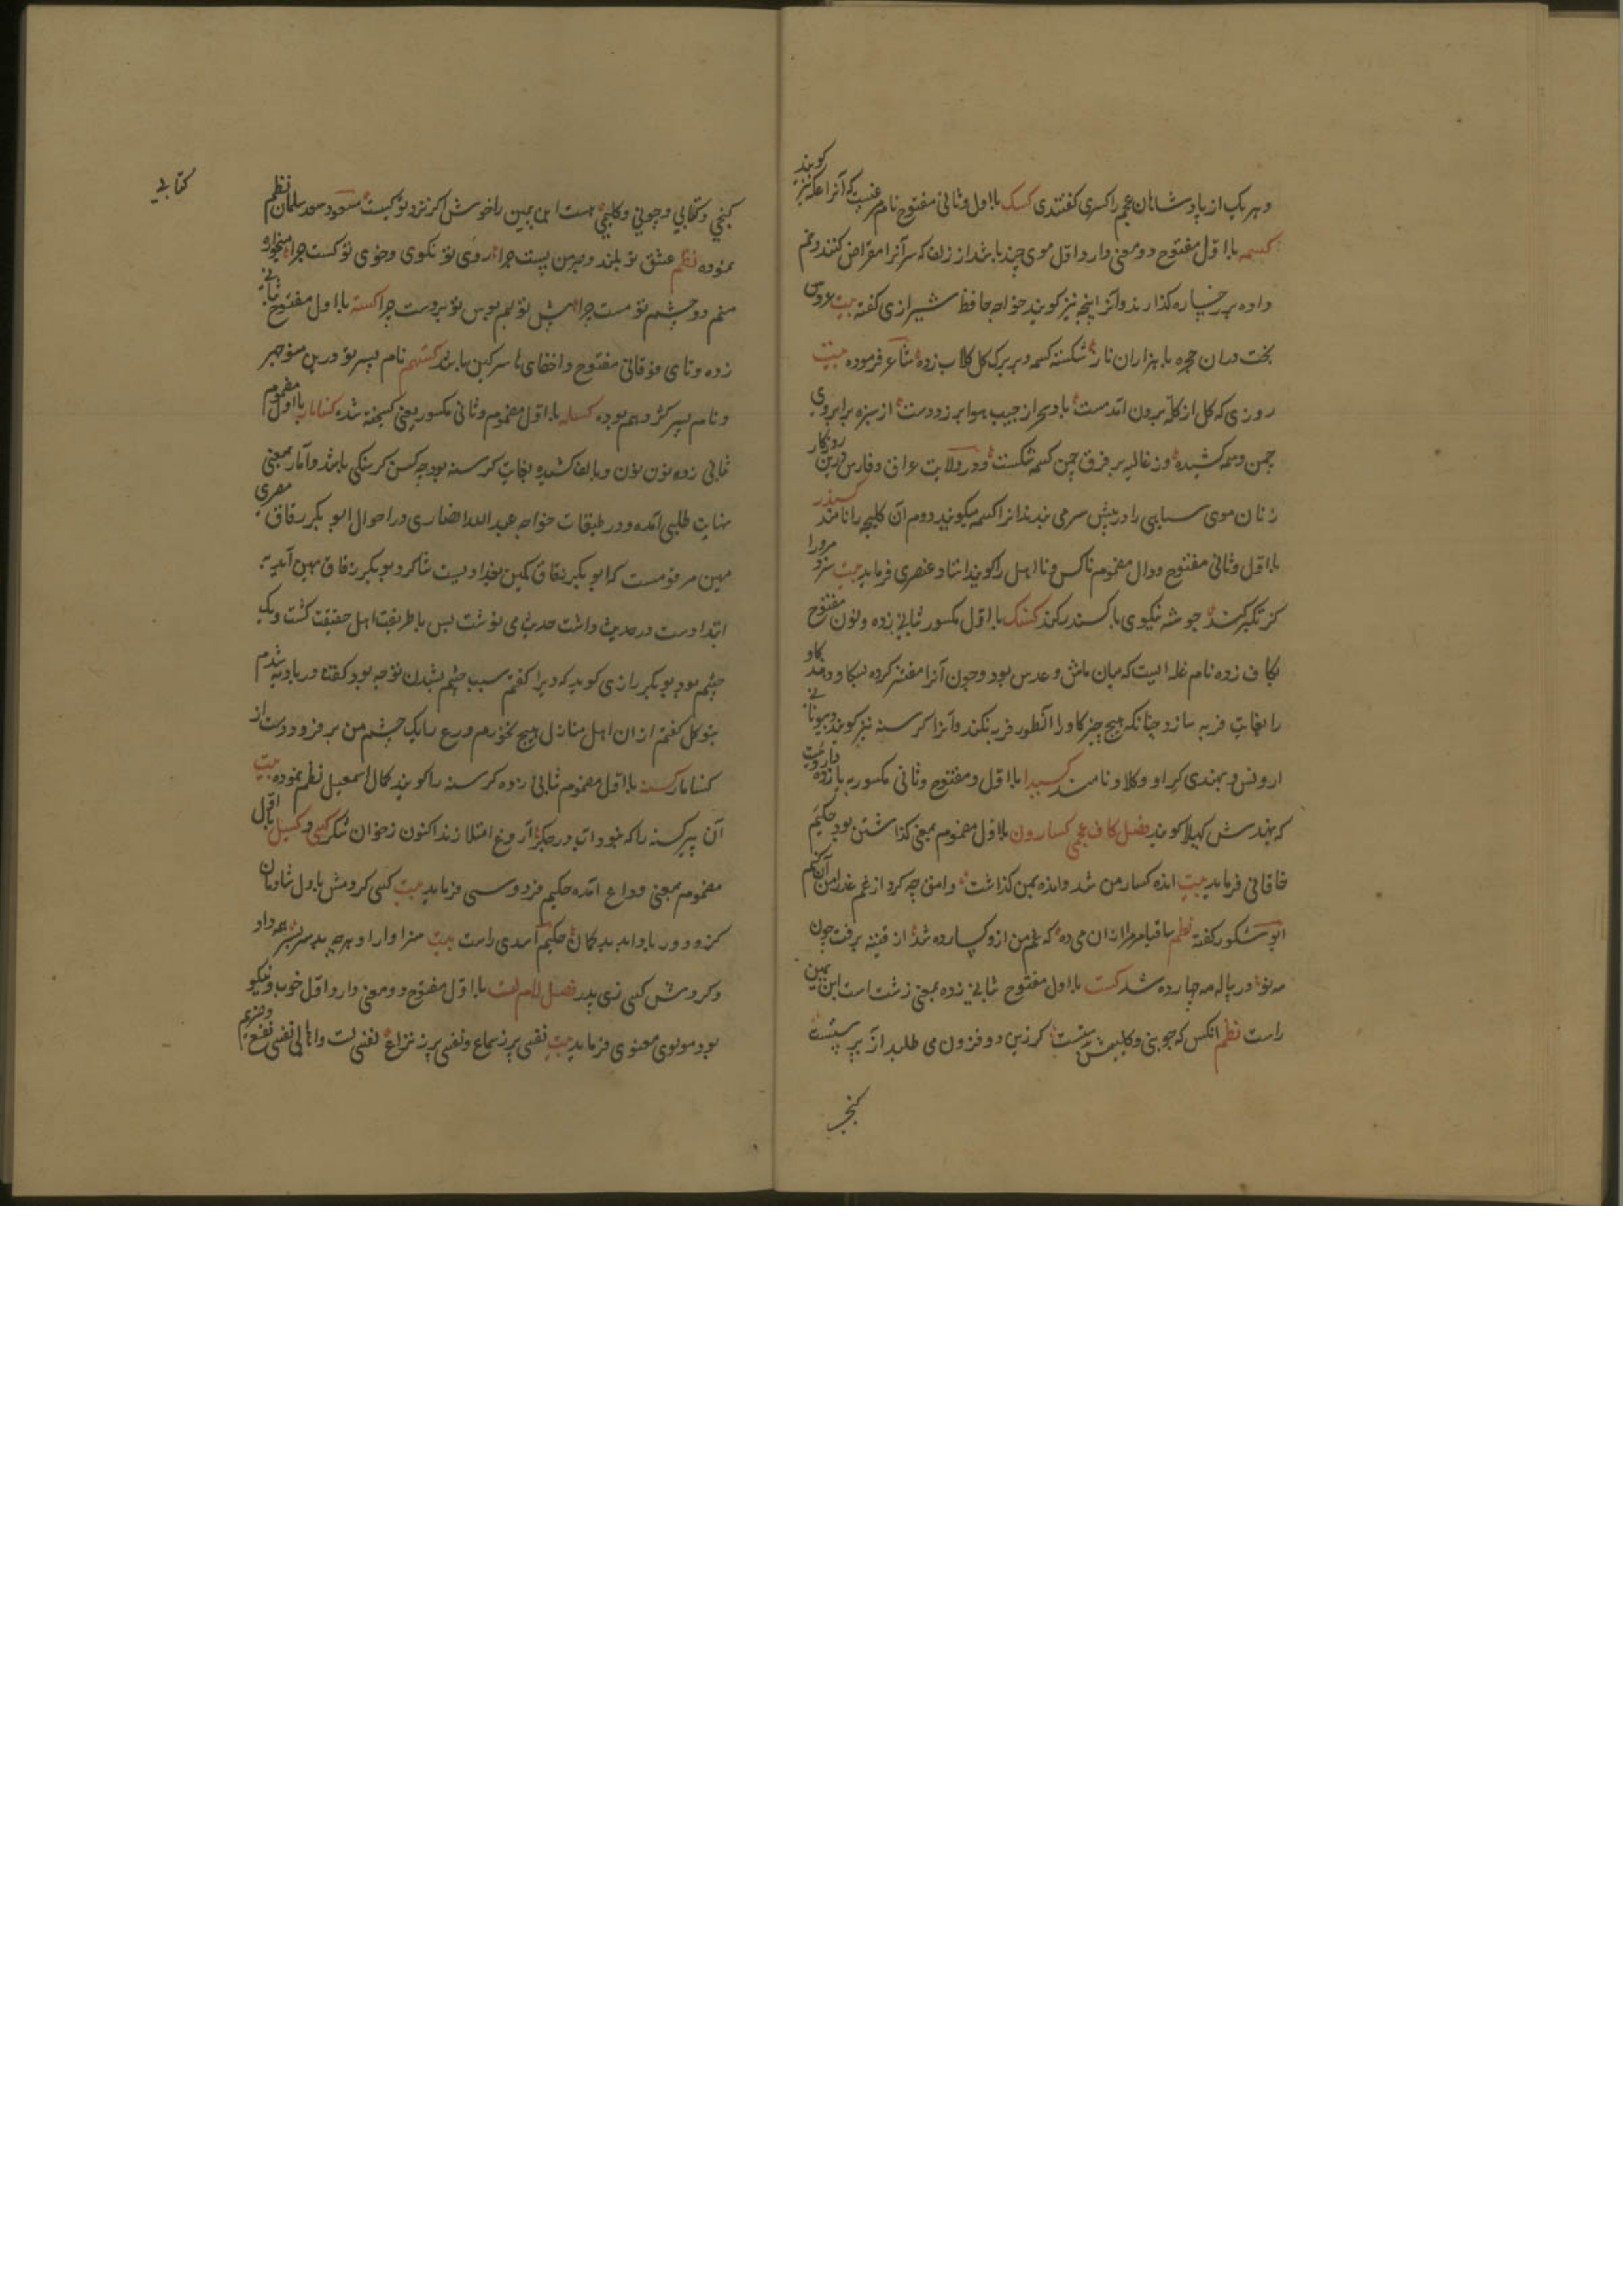 وهر یک از پادشاهان عجم را کسری گفتندی کسک با اول و ثانی مفتوح نام مرغیست که آنرا عکه نیز گویند
کسمه با اول مفتوح دو معنی دارد اول موی چند باشد از زلف که سر آنرا مقراض کنند و خم
داده بر رخساره گذارند و آنرا پیچه نیز گویند خواجه حافظ شیرازی گفته بیت عروس
بخت دران حجره با هزاران ناز شکسته کسمه و بر برک کل کلاب زده شاعر فرموده بیت
روزی که کل از کله برون آمد مست باد سحر از جیب هوا بر زد دست از سبزه بر ابروی
چمن وسمه کشیده وز غالیه بر فرق چمن کسمه شکست و در ولایت عراق و فارس درین روزکار
زنان موی سیاهی را در پیش سر می بندند آنرا کسمه میکویند دوم آن کلیچه را نامند کسندر
با اول و ثانی مفتوح و دال مضموم ناکس و نااهل را کویند استاد عنصری فرماید بیت سزد مرورا
کر تکبر کند چو شه نیکوی با کسندر کند کسنک با اول مکسور ثانی زده و نون مفتوح
بکاف زده نام غله ایست که میان ماش و عدس بود و چون آنرا مقشر کرده بکاو دهند کاو
را بغایت فربه سازد چنانکه هیچ چیز کاو را آنطور فربه نکند و آنرا کرسنه نیز کویند و بیونانی
اروبس و بهندی کراو و کلاو نامند کسیدا با اول و مفتوح و ثانی مکسور بیا زده داروئیست
که بهندش کهیلا کویند فصل کاف عجمی کسارون با اول مضموم بمعنی گذاشتن بود حکیم
خاقانی فرماید بیت انده کسار من شد و انده بمن گذاشت وامق چه کرد از غم عذرا من آن کنم
ابو شکور گفته نظم ساقیا مر مرا ازان می ده که غم من ازو کسارده شد از قنینه برفت چون
مه نو در پیاله مه چهارده شد کست با اول مفتوح ثانی زده بمعنی زشت است ابن یمین
راست نظم آنکس که چو بنی و کلیمش نیست کر زین دو فزون می طلبد از پی نیست
کنجی
کنجی و کتابی و چونی و کلیمی هست ابن یمین را خوش اکر نزد تو کیست مسعود سعد سلمان نظم
نموده نظم عشق تو بلند و صبر من پست چرا روی تو نکوی و خوی تو کست چرا میخواره
منم دو چشم تو مست چرا پیش تو لبم بوس تو بر دست چرا کسته با اول مفتوح ثانی
زده و تای فوقانی مفتوح و اخفای ها سرکین باشد کستهم نام پسر نوذر بن منوچهر
و نام پسر کژدهم بوده کسله با اول مضموم و ثانی مکسور یعنی کسیخته شده کسنامار با اول مضموم
ثانی زده نون و بالف کشیده بغایت کرسنه بود چه کسن کرسنکی باشد و آمار بمعنی
نهایت طلبی آمده و در طبقات خواجه عبد الله انصاری در احوال ابو بکر زقاق مصری
همین مرقومست که ابو بکر زقاق کهین بغدادیست شاکرد بو بکر زقاق مهین آمد به
ابتدا دست در حدیث داشت حدیث می نوشت پس با طریقت اهل حقیقت کشت و یک
چشم بود بو بکر رازی کوید که ویرا کفتم سبب چشم بشدن تو چه بود کفتا در بادیه شدم
بتوکل کفتم از ان اهل منازل هیچ نخورم ورع را یک چشم من بر فزود دست از
کسنامار کسنه با اول مضموم ثانی زده کرسنه را کویند کمال اسمعیل نظم نموده بیت
آن پیر کسنه را که نبود آب در جکر آروغ امتلا زند اکنون ز خوان شکر کسی و کسیل با اول
مضموم بمعنی وداع آمده حکیم فردوسی فرماید بیت کسی کردمش با دل شادمان
کزو دور بادا بد بدکمان حکیم اسدی راست بیت سزاوار او هر چه بد سربسر همه داد
و کردش کسی زی پدر فصل اللام لت با اول مفتوح دو معنی دارد اول خوب و نیکو
بود مولوی معنوی فرماید بیت نفسی پر ز سماع و نفسی پر ز نزاع نفسی لت وابالی نفسی نفع و ضرم
کتابی